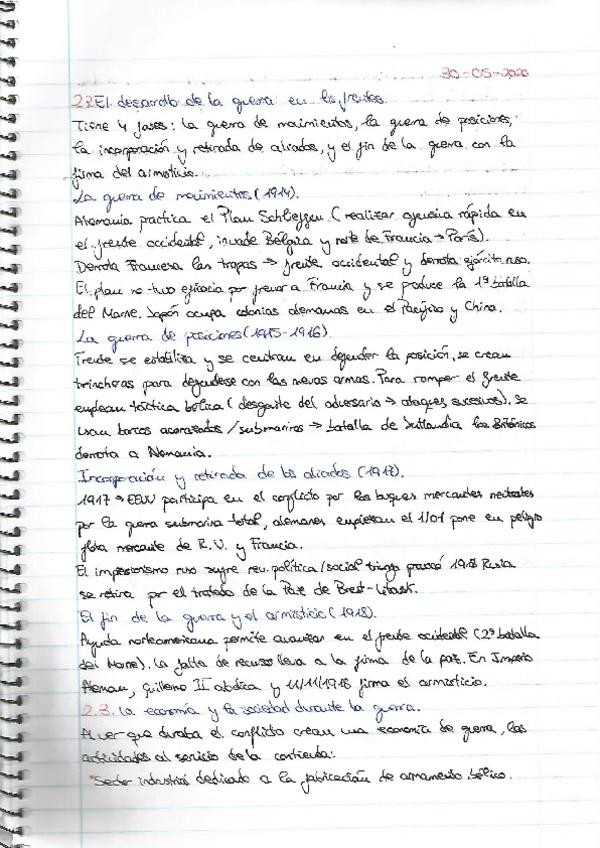 30-05-2020
2.2 El desarrollo de la guerra en los frentes.
Tiene 4 fases: la guerra de movimientos, la guerra de posiciones,
la incorporación y retirada de aliados, y el fin de la guerra con la
firma del armisticio.
La guerra de movimientos (1914).
Alemania practica el Plan Schlieffen (realizar ofensiva rápida en
el frente occidental, invade Bélgica y norte de Francia → París).
Derrota Francesa las tropas → frente occidental y derrota ejército ruso.
El plan no tuvo eficacia por frenar a Francia y se produce la 1ª batalla
del Marne. Japón ocupa colonias alemanas en el Pacífico y China.
La guerra de posiciones (1915-1916).
Frente se estabiliza y se centran en defender la posición, se crean
trincheras para defenderse con las nuevas armas. Para romper el frente
emplean táctica bélica (desgaste del adversario → ataques sucesivos). Se
usan barcos acorazados / submarinos → batalla de Jutlandia los Británicos
derrota a Alemania.
Incorporación y retirada de los aliados (1917).
1917 → EEUU participa en el conflicto por los buques mercantes neutrales
por la guerra submarina total, alemanes empiezan el 1/01 pone en peligro
flota mercante de R.U. y Francia.
El ruso sufre rev. política / social 1918 Rusia
se retira por el tratado de la Paz de Brest-Litovsk.
El fin de la guerra y el armisticio (1918).
Ayuda norteamericana permite avanzar en el frente occidental (2ª batalla
del Marne). La falta de recursos lleva a la firma de la paz. En Imperio
Alemán, Guillermo II abdica y 11/11/1918 firma el armisticio.
2.3. La economía y la sociedad durante la guerra.
Al ver que duraba el conflicto crean una economía de guerra, las
actividades al servicio de la contienda:
*Sector industrial dedicado a la fabricación de armamento bélico.